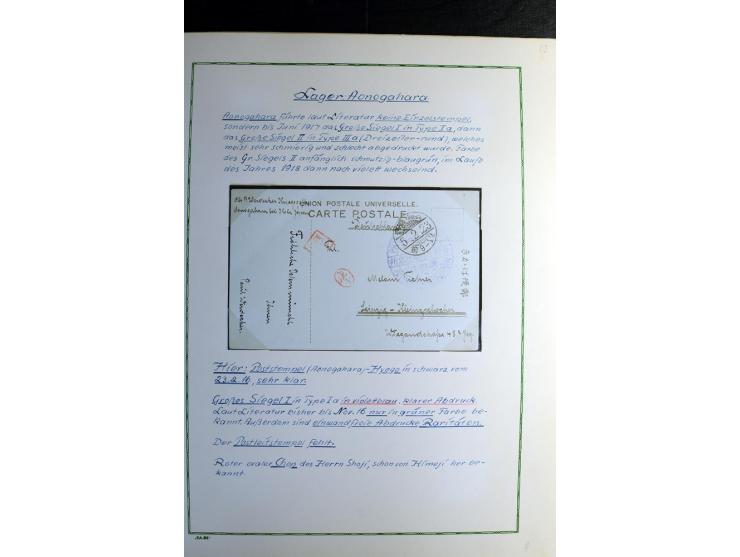 Lager Aonogahara
Aonogahara führte laut Literatur keine Einzelstempel,
sondern bis Juni 1917 das Große Siegel I in Type Ia, dann
das Große Siegel II in Type IIIa (Dreizeilen-rund), welches
meist sehr schmierig und schlecht abgedruckt wurde. Farbe
des Gr. Siegels II anfänglich schmutzig-blaugrün, im Laufe
des Jahres 1918 dann nach violett wechselnd.
UNION POSTALE UNIVERSELLE.
CARTE POSTALE
5.2.23
Fröhliche Ostern wünscht
Ihnen
Leipzig - Kleinzschocher
Hier: Poststempel (Aonogahara)-Hyogo in schwarz vom
23.2.16, sehr klar.
Großes Siegel I in Type Ia in violettblau, klarer Abdruck.
Laut Literatur bisher bis Nov. 16 nur in grüner Farbe be-
kannt. Außerdem sind einwandfreie Abdrucke Raritäten.
Der Postleitstempel fehlt.
Roter ovaler Chon des Herrn Shoji, schon von Himeji her be-
kannt.